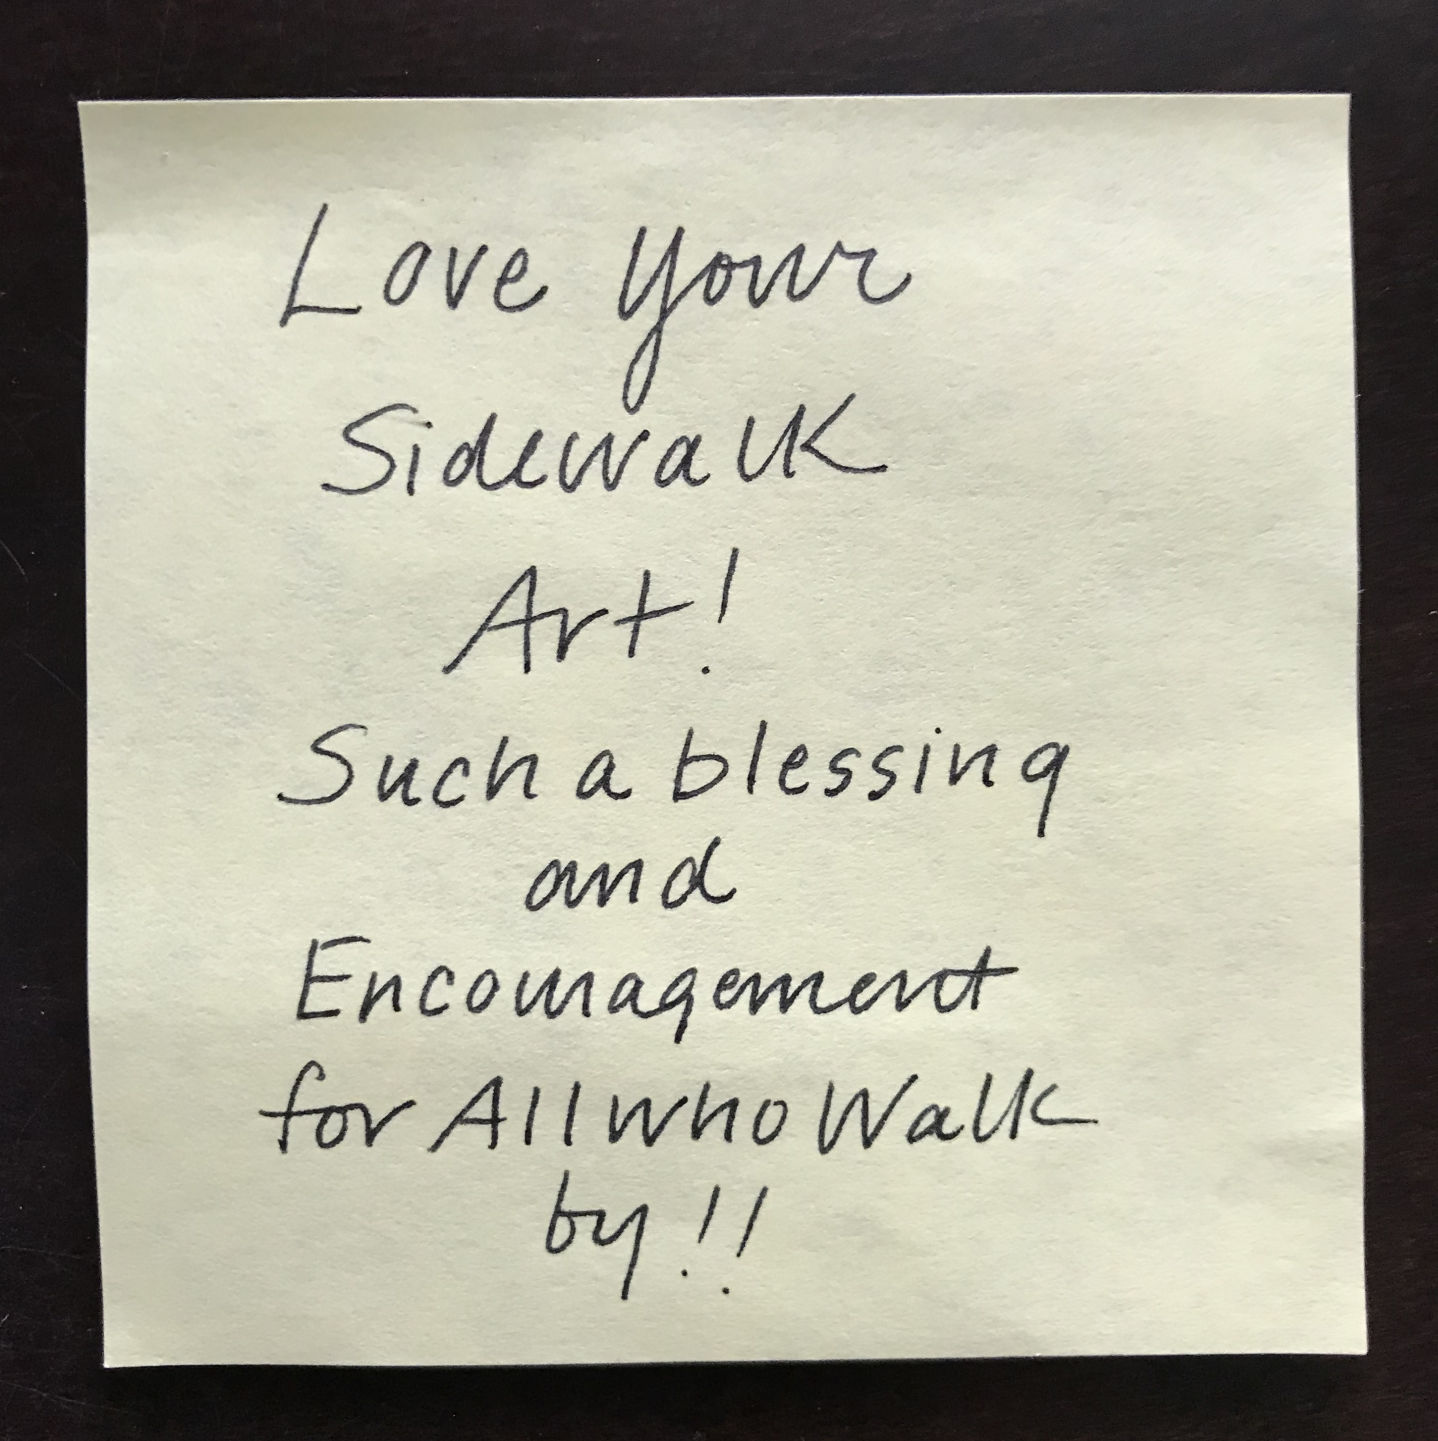 Love your
Sidewalk
Art!
Such a blessing
and
Encouragement
for All who Walk
by!!